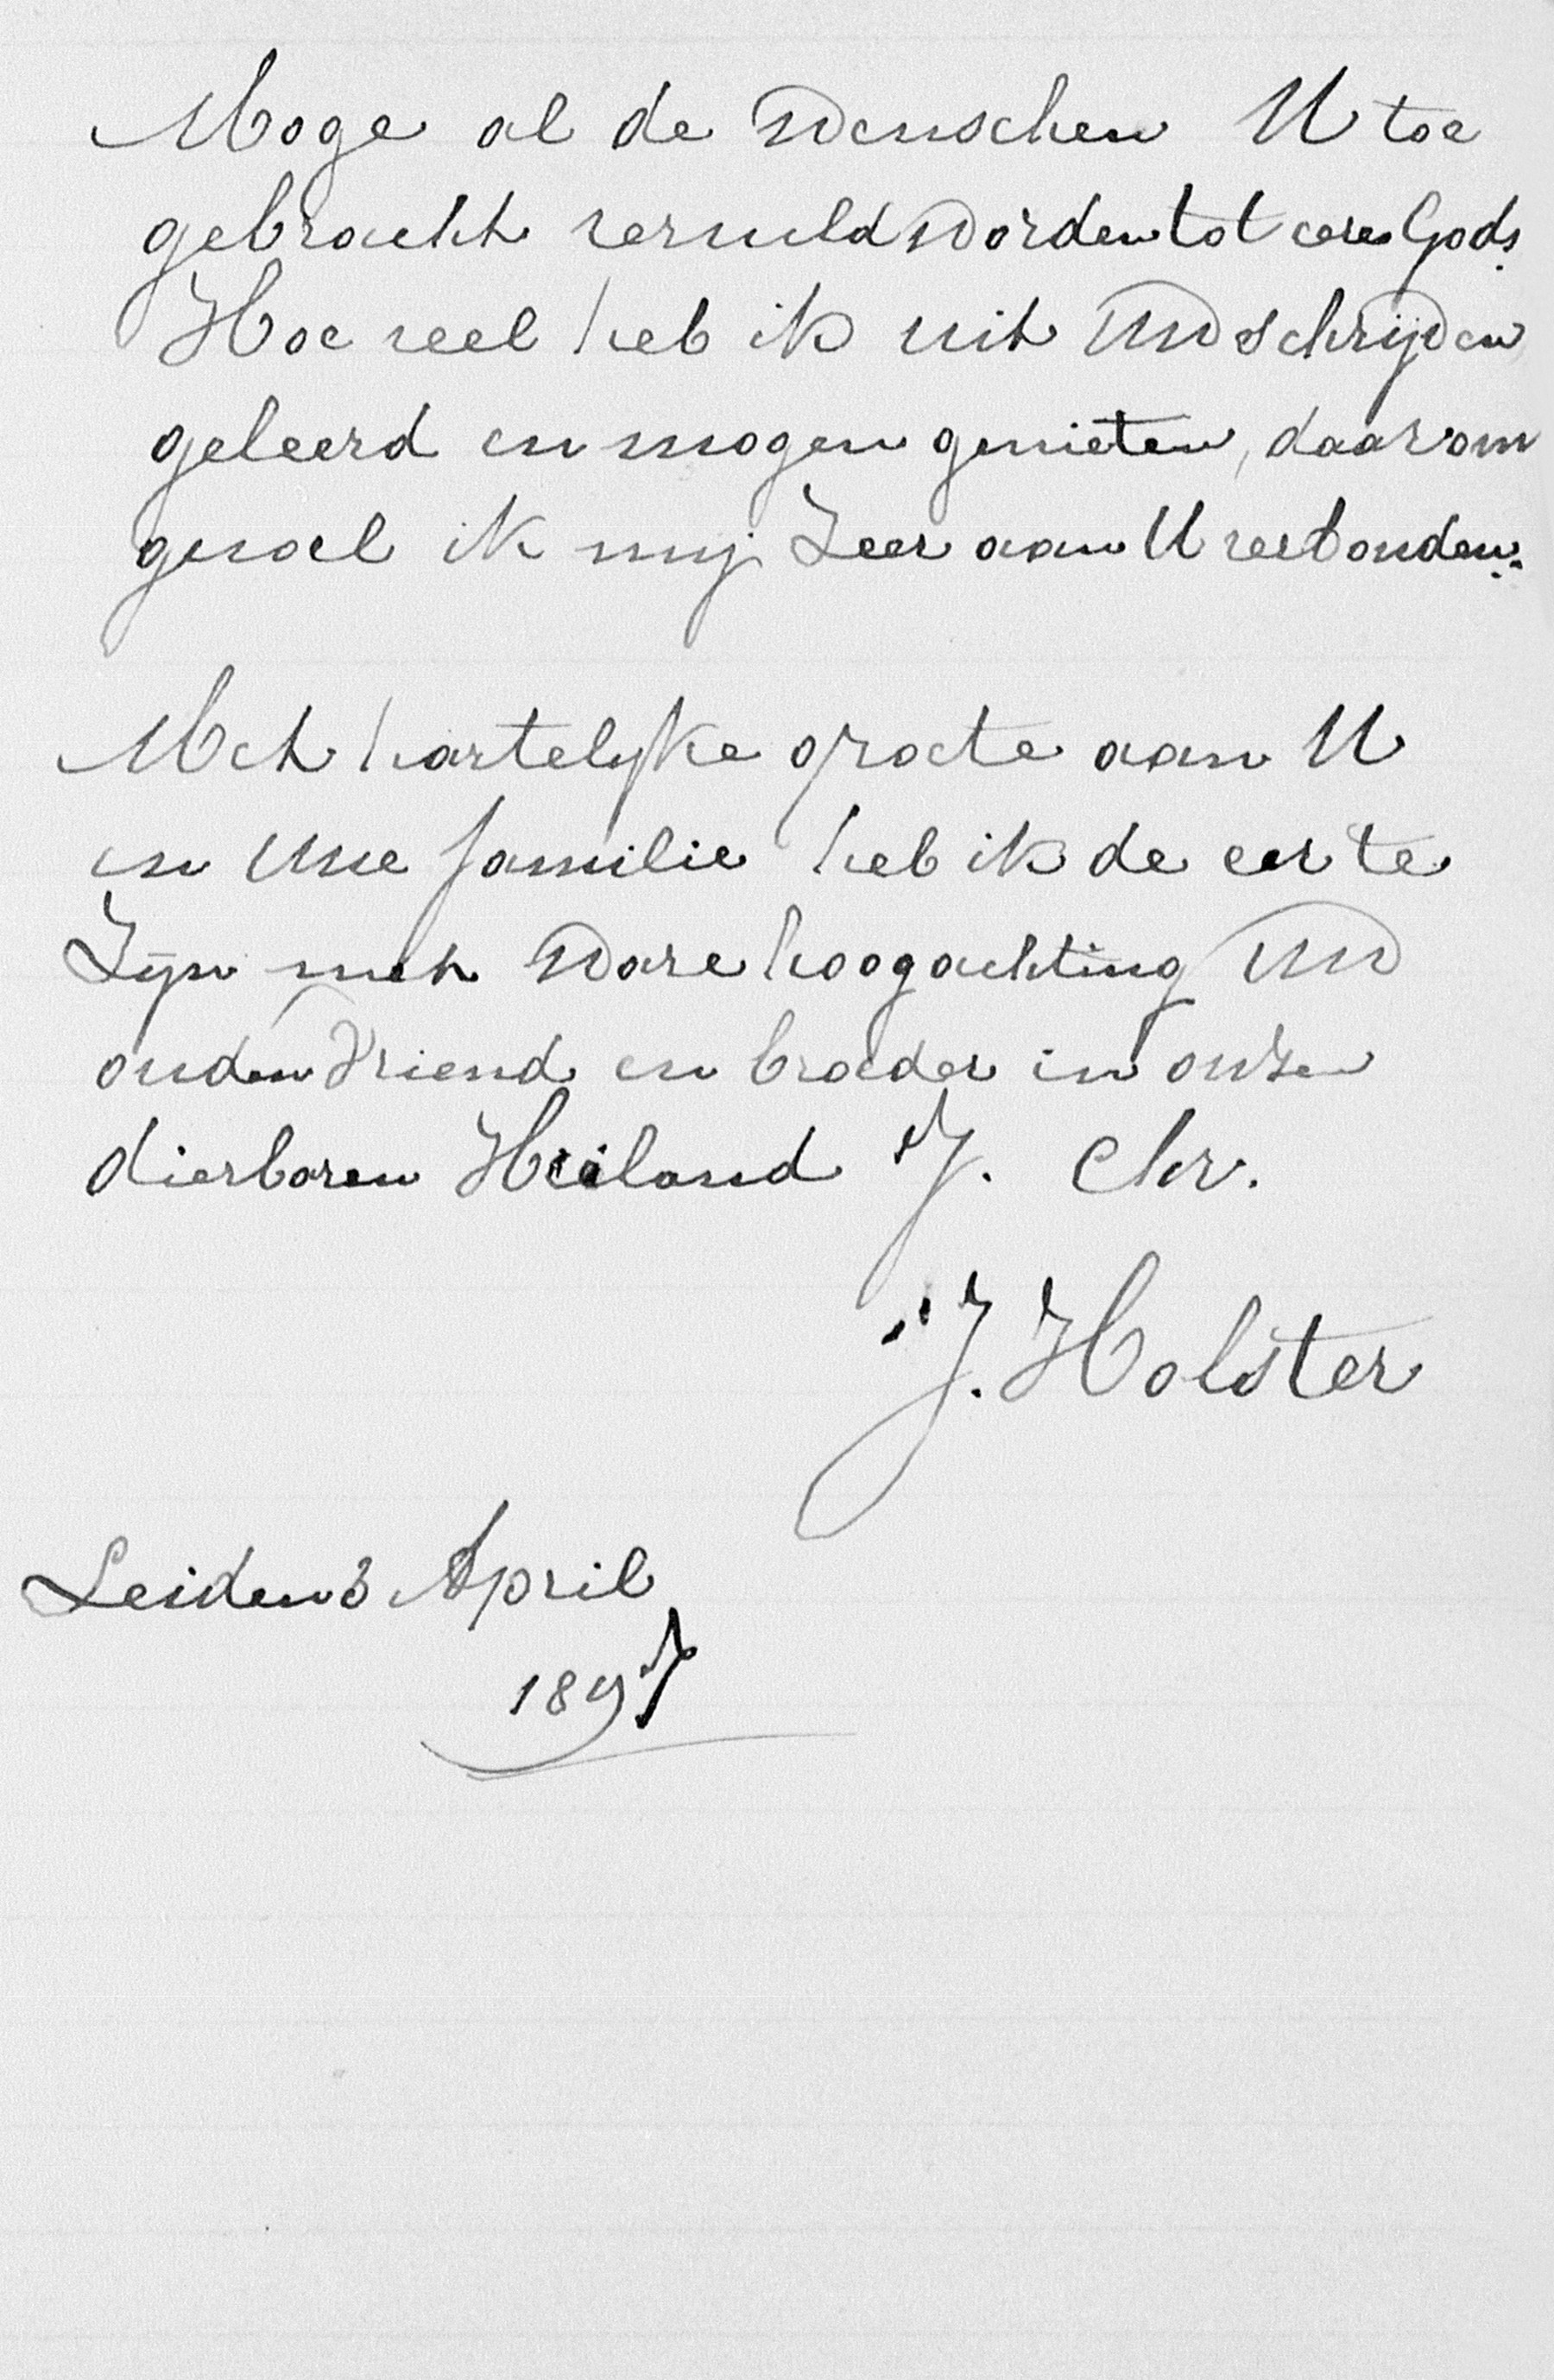 Moge al de wenschen U toe
gebracht vervuld worden tot eere Gods.
Hoe veel heb ik uit Uw schrijven
geleerd en mogen genieten, daarom
gevoel ik mij Zeer aan U verbonden.
Met hartelijke groete aan U
en Uwe familie heb ik de eer te
Zijn met ware hoogachting Uw
ouden Vriend en broeder in onzen
dierbaren Heiland J. Chr.
J. Holster
Leiden 3 April
1897